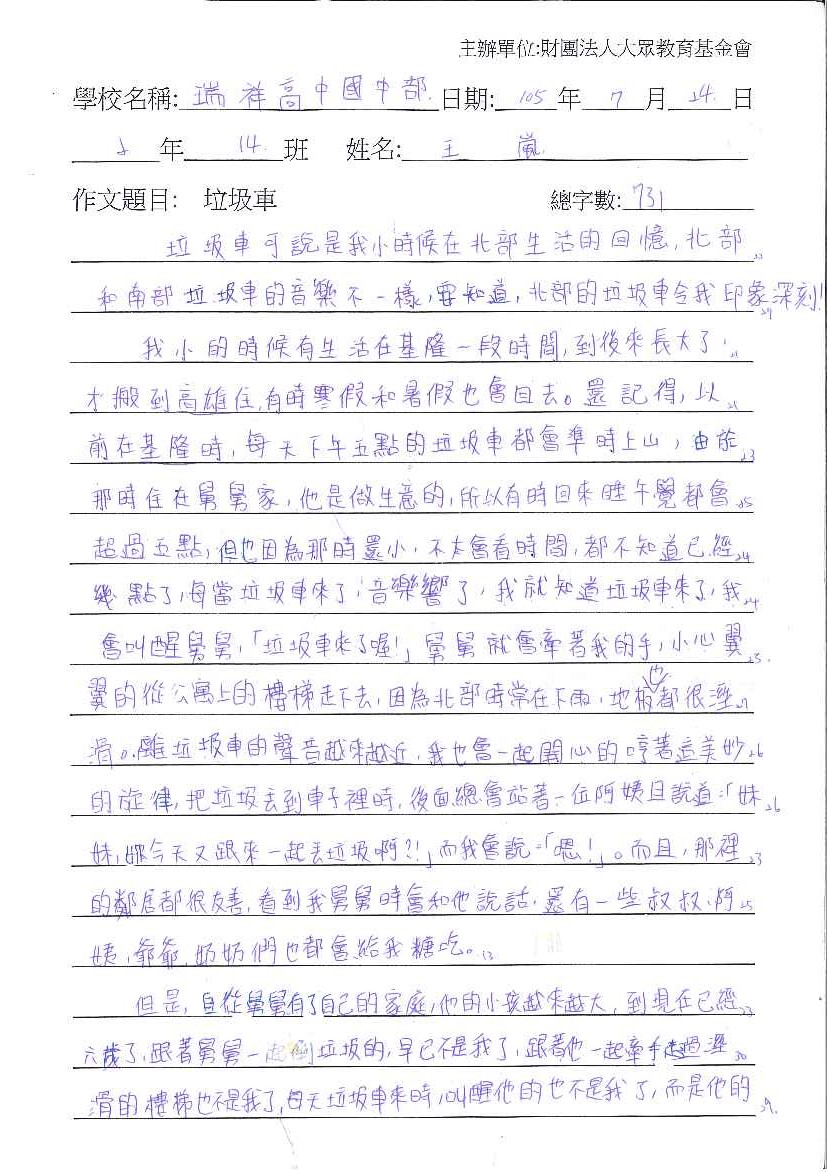 主辦單位:財團法人大眾教育基金會
學校名稱: 瑞祥高中國中部 日期: 105 年 7 月 24 日
年 14 班 姓名: 王 嵐
作文題目: 垃圾車 總字數: 731
垃圾車可說是我小時候在北部生活的回憶,北部
和南部垃圾車的音樂不一樣,要知道,北部的垃圾車令我印象深刻!
我小的時候有生活在基隆一段時間,到後來長大了,
才搬到高雄住,有時寒假和暑假也會回去。還記得,以
前在基隆時,每天下午五點的垃圾車都會準時上山,由於
那時住在舅舅家,他是做生意的,所以有時回來睡午覺都會
超過五點,但也因為那時還小,不太會看時間,都不知道已經
幾點了,每當垃圾車來了,音樂響了,我就知道垃圾車來了,我
會叫醒舅舅,「垃圾車來了喔!」舅舅就會牽著我的手,小心翼
翼的從公寓上的樓梯走下去,因為北部時常在下雨,地板也都很溼
滑。離垃圾車的聲音越來越近,我也會一起開心的哼著這美妙
的旋律,把垃圾丟到車子裡時,後面總會站著一位阿姨且說道:「妹
妹,妳今天又跟來一起丟垃圾啊?!」而我會說:「嗯!」。而且,那裡
的鄰居都很友善,看到我舅舅時會和他說話,還有一些叔叔、阿
姨、爺爺、奶奶們也都會給我糖吃。
但是,自從舅舅有了自己的家庭,他的小孩越來越大,到現在已經
六歲了,跟著舅舅一起倒垃圾的,早已不是我了,跟著他一起牽手走過溼
滑的樓梯也不是我了,每天垃圾車來時,叫醒他的也不是我了,而是他的